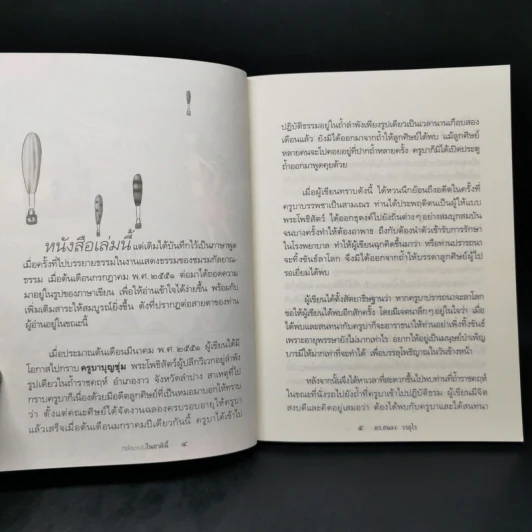 หนังสือเล่มนี้ แต่เดิมได้บันทึกไว้เป็นภาษาพูด
เมื่อครั้งที่ไปบรรยายธรรม ในงานแสดงธรรมของชมรมกัลยาณ-
ธรรม เมื่อต้นเดือนกรกฎาคม พ.ศ.๒๕๕๑ ต่อมาได้ถอดความ
มาอยู่ในรูปของภาษาเขียน เพื่อให้อ่านเข้าใจได้ง่ายขึ้น พร้อมกับ
เพิ่มเติมสาระให้สมบูรณ์ยิ่งขึ้น ดังที่ปรากฏต่อสายตาของท่าน
ผู้อ่านอยู่ในขณะนี้
เมื่อประมาณต้นเดือนมีนาคม พ.ศ. ๒๕๕๑ ผู้เขียนได้มี
โอกาสไปกราบ ครูบาบุญชุ่ม พระโพธิสัตว์ผู้ปลีกวิเวกอยู่ลำพัง
รูปเดียวในถ้ำราชคฤห์ อำเภองาว จังหวัดลำปาง สาเหตุที่ไป
กราบครูบาก็เนื่องด้วยมีอดีตลูกศิษย์ที่เป็นหมอมาบอกให้ทราบ
ว่า ตั้งแต่คณะศิษย์ได้จัดงานฉลองครบรอบอายุให้ครูบา
แล้วเสร็จเมื่อต้นเดือนมกราคมปีเดียวกันนี้ ครูบาได้เข้าไป
๔
ปฏิบัติธรรมอยู่ในถ้ำลำพังเพียงรูปเดียวเป็นเวลานานเกือบสอง
เดือนแล้ว ยังมิได้ออกมาจากถ้ำให้ลูกศิษย์ได้พบ แม้ลูกศิษย์
หลายคนจะไปคอยอยู่ที่ปากถ้ำหลายครั้ง ครูบาก็มิได้เปิดประตู
ถ้ำออกมาพูดคุยด้วย
เมื่อผู้เขียนทราบดังนี้ ได้หวนนึกย้อนถึงอดีตในครั้งที่
ครูบาบรรพชาเป็นสามเณร ท่านได้ประพฤติตนเป็นผู้ให้แบบ
พระโพธิสัตว์ ได้ออกธุดงค์ไปยังถิ่นต่างๆอย่างสมบุกสมบัน
จนบางครั้งทำให้ต้องอาพาธ ถึงกับต้องนำตัวเข้ารับการรักษา
ในโรงพยาบาล ทำให้ผู้เขียนฉุกคิดขึ้นมาว่า หรือท่านปรารถนา
จะทิ้งขันธ์ลาโลก จึงมิได้ออกจากถ้ำให้บรรดาลูกศิษย์ผู้ไป
รอเยี่ยมได้พบ
ผู้เขียนได้ตั้งสัตยาธิษฐานว่า หากครูบาปรารถนาจะลาโลก
ขอให้ผู้เขียนได้พบอีกสักครั้ง โดยมีเจตนาลึกๆอยู่ในใจว่า เมื่อ
ได้พบและสนทนากับครูบาก็จะอาราธนาให้ท่านอย่าเพิ่งทิ้งขันธ์
เพราะอายุพรรษายังไม่มากเท่าไร อยากให้อยู่เป็นมนุษย์บำเพ็ญ
บารมีให้มากเท่าที่จะทำได้ เพื่อบรรลุโพธิญาณในวันข้างหน้า
หลังจากนั้นจึงได้หาเวลาที่สะดวกขึ้นไปพบท่านที่ถ้ำราชคฤห์
ในขณะที่นั่งรถไปยังถ้ำที่ครูบาเข้าไปปฏิบัติธรรม ผู้เขียนมีจิต
สงบดีและคิดอยู่เสมอว่า ต้องได้พบกับครูบาและได้สนทนา
๕ ดร.สนอง วรอุไร